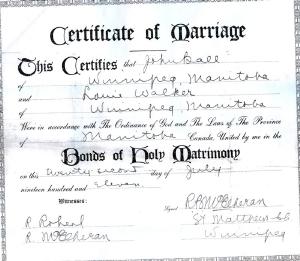 Certificate of Marriage
This Certifies that John Ball
of Winnipeg, Manitoba
and Louie Walker
of Winnipeg, Manitoba
Were in accordance with The Ordinance of God and The Laws of The Province
of Manitoba Canada, United by me in the
Bonds of Holy Matrimony
on this twenty second day of July
nineteen hundred and eleven
Witnesses:
Signed R B McElheran
R. St Matthews
R. McElheran Winnipeg